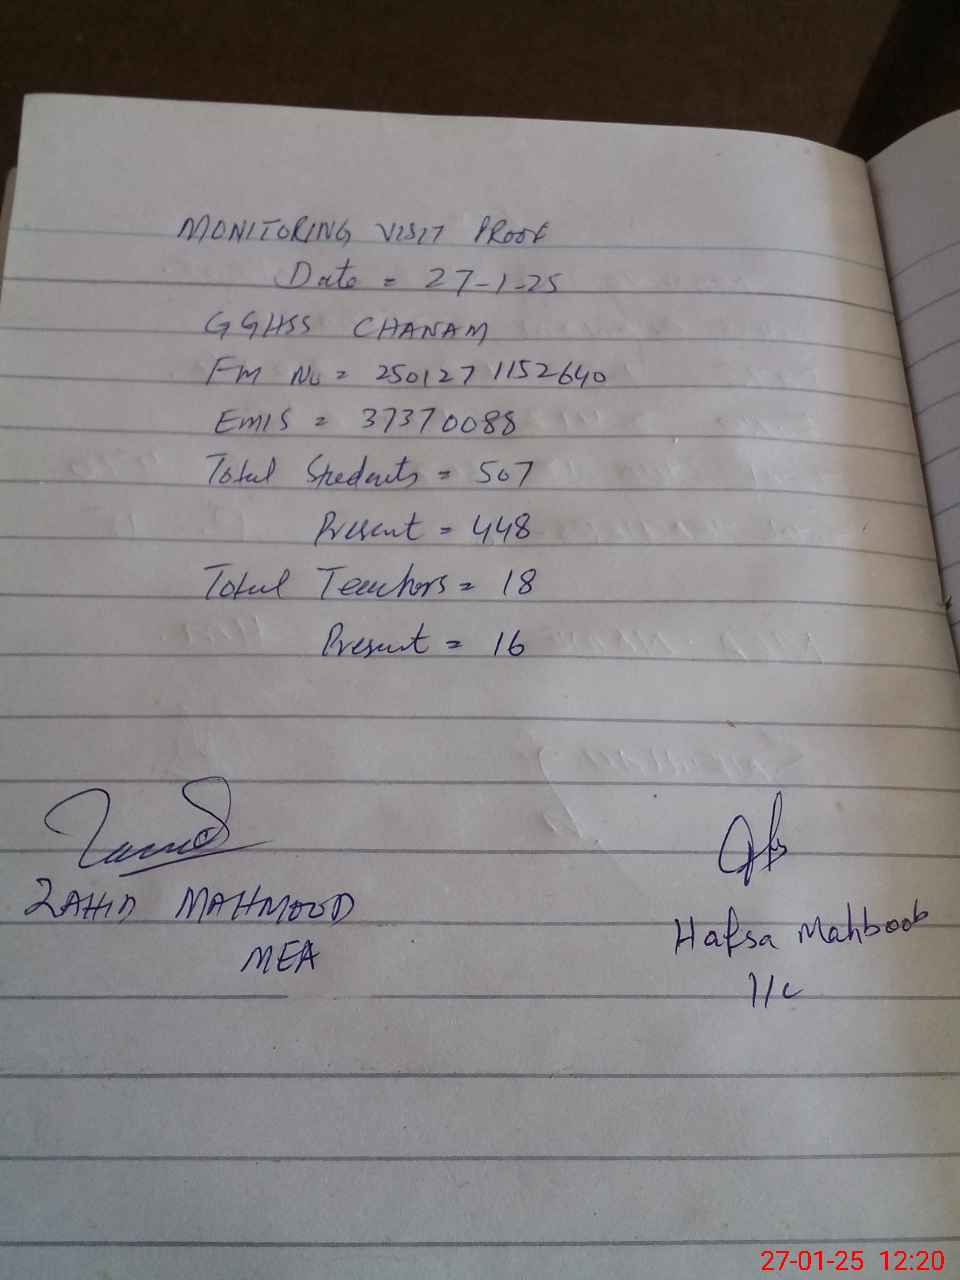 MONITORING VISIT PROOF
Date = 27-1-25
GGHSS CHANAM
FM No = 250127 1152640
EMIS = 37370088
Total Students = 507
Present = 448
Total Teachers = 18
Present = 16
ZAHID MAHMOOD
MEA
Hafsa Mahboob
I/C
27-01-25 12:20